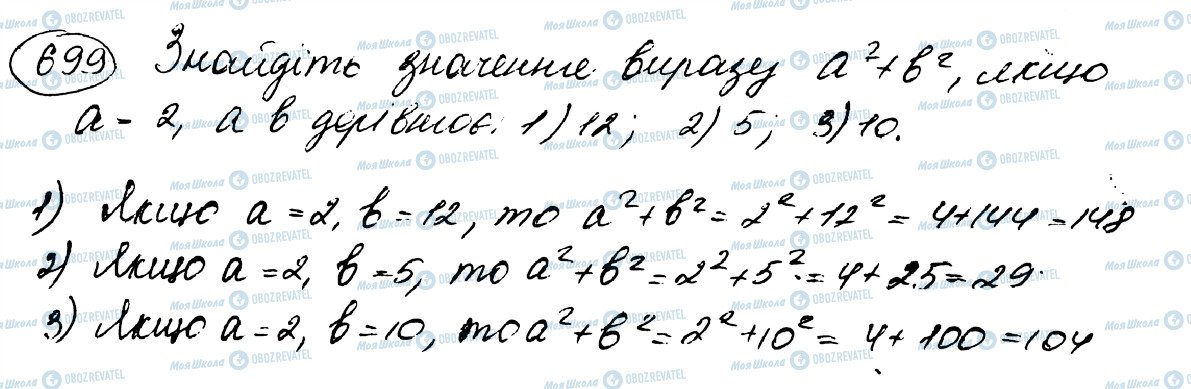 699 Знайдіть значення виразу a² + b², якщо
a = 2, а b дорівнює: 1) 12; 2) 5; 3) 10.
1) Якщо a = 2, b = 12, то a² + b² = 2² + 12² = 4 + 144 = 148
2) Якщо a = 2, b = 5, то a² + b² = 2² + 5² = 4 + 25 = 29.
3) Якщо a = 2, b = 10, то a² + b² = 2² + 10² = 4 + 100 = 104